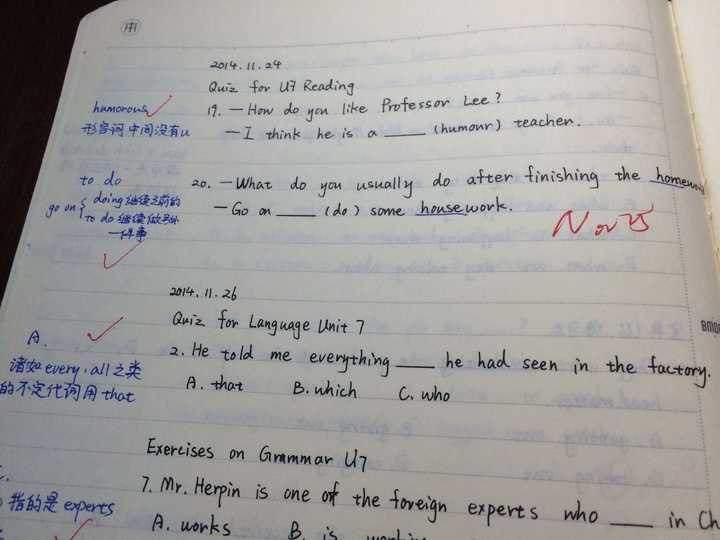 2014.11.24
Quiz for U7 Reading
humorous
形容词 中间没有u
19. —How do you like Professor Lee?
—I think he is a ____ (humour) teacher.
to do
go on { doing 继续之前的
to do 继续做另外
一件事
20. —What do you usually do after finishing the
—Go on ____ (do) some housework.
Nov 25
2014.11.26
Quiz for Language Unit 7
A.
诸如 every, all 之类
的不定代词用 that
2. He told me everything ____ he had seen in the factory.
A. that B. which C. who
Exercises on Grammar U7
指的是 experts
7. Mr. Herpin is one of the foreign experts who ____ in
A. works B. is